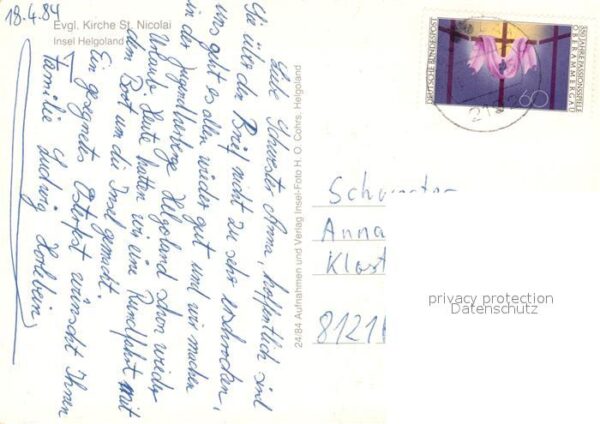 18.4.84
Evgl. Kirche St. Nicolai
Insel Helgoland
Liebe Schwester Anna, hoffentlich sind
Sie über den Brief nicht zu sehr erschrocken,
uns geht es allen wieder gut und wir machen
in der Jugendherberge Helgoland schon wieder
Urlaub. Heute hatten wir eine Rundfahrt mit
dem Boot um die Insel gemacht.
Ein gesegnetes Osterfest wünscht Ihnen
Familie Ludwig
24/84 Aufnahmen und Verlag Insel-Foto H. O. Cohrs, Helgoland
DEUTSCHE BUNDESPOST
350 JAHRE PASSIONSSPIELE
OBERAMMERGAU
60
Schwester
Anna
Klost
8121
privacy protection
Datenschutz